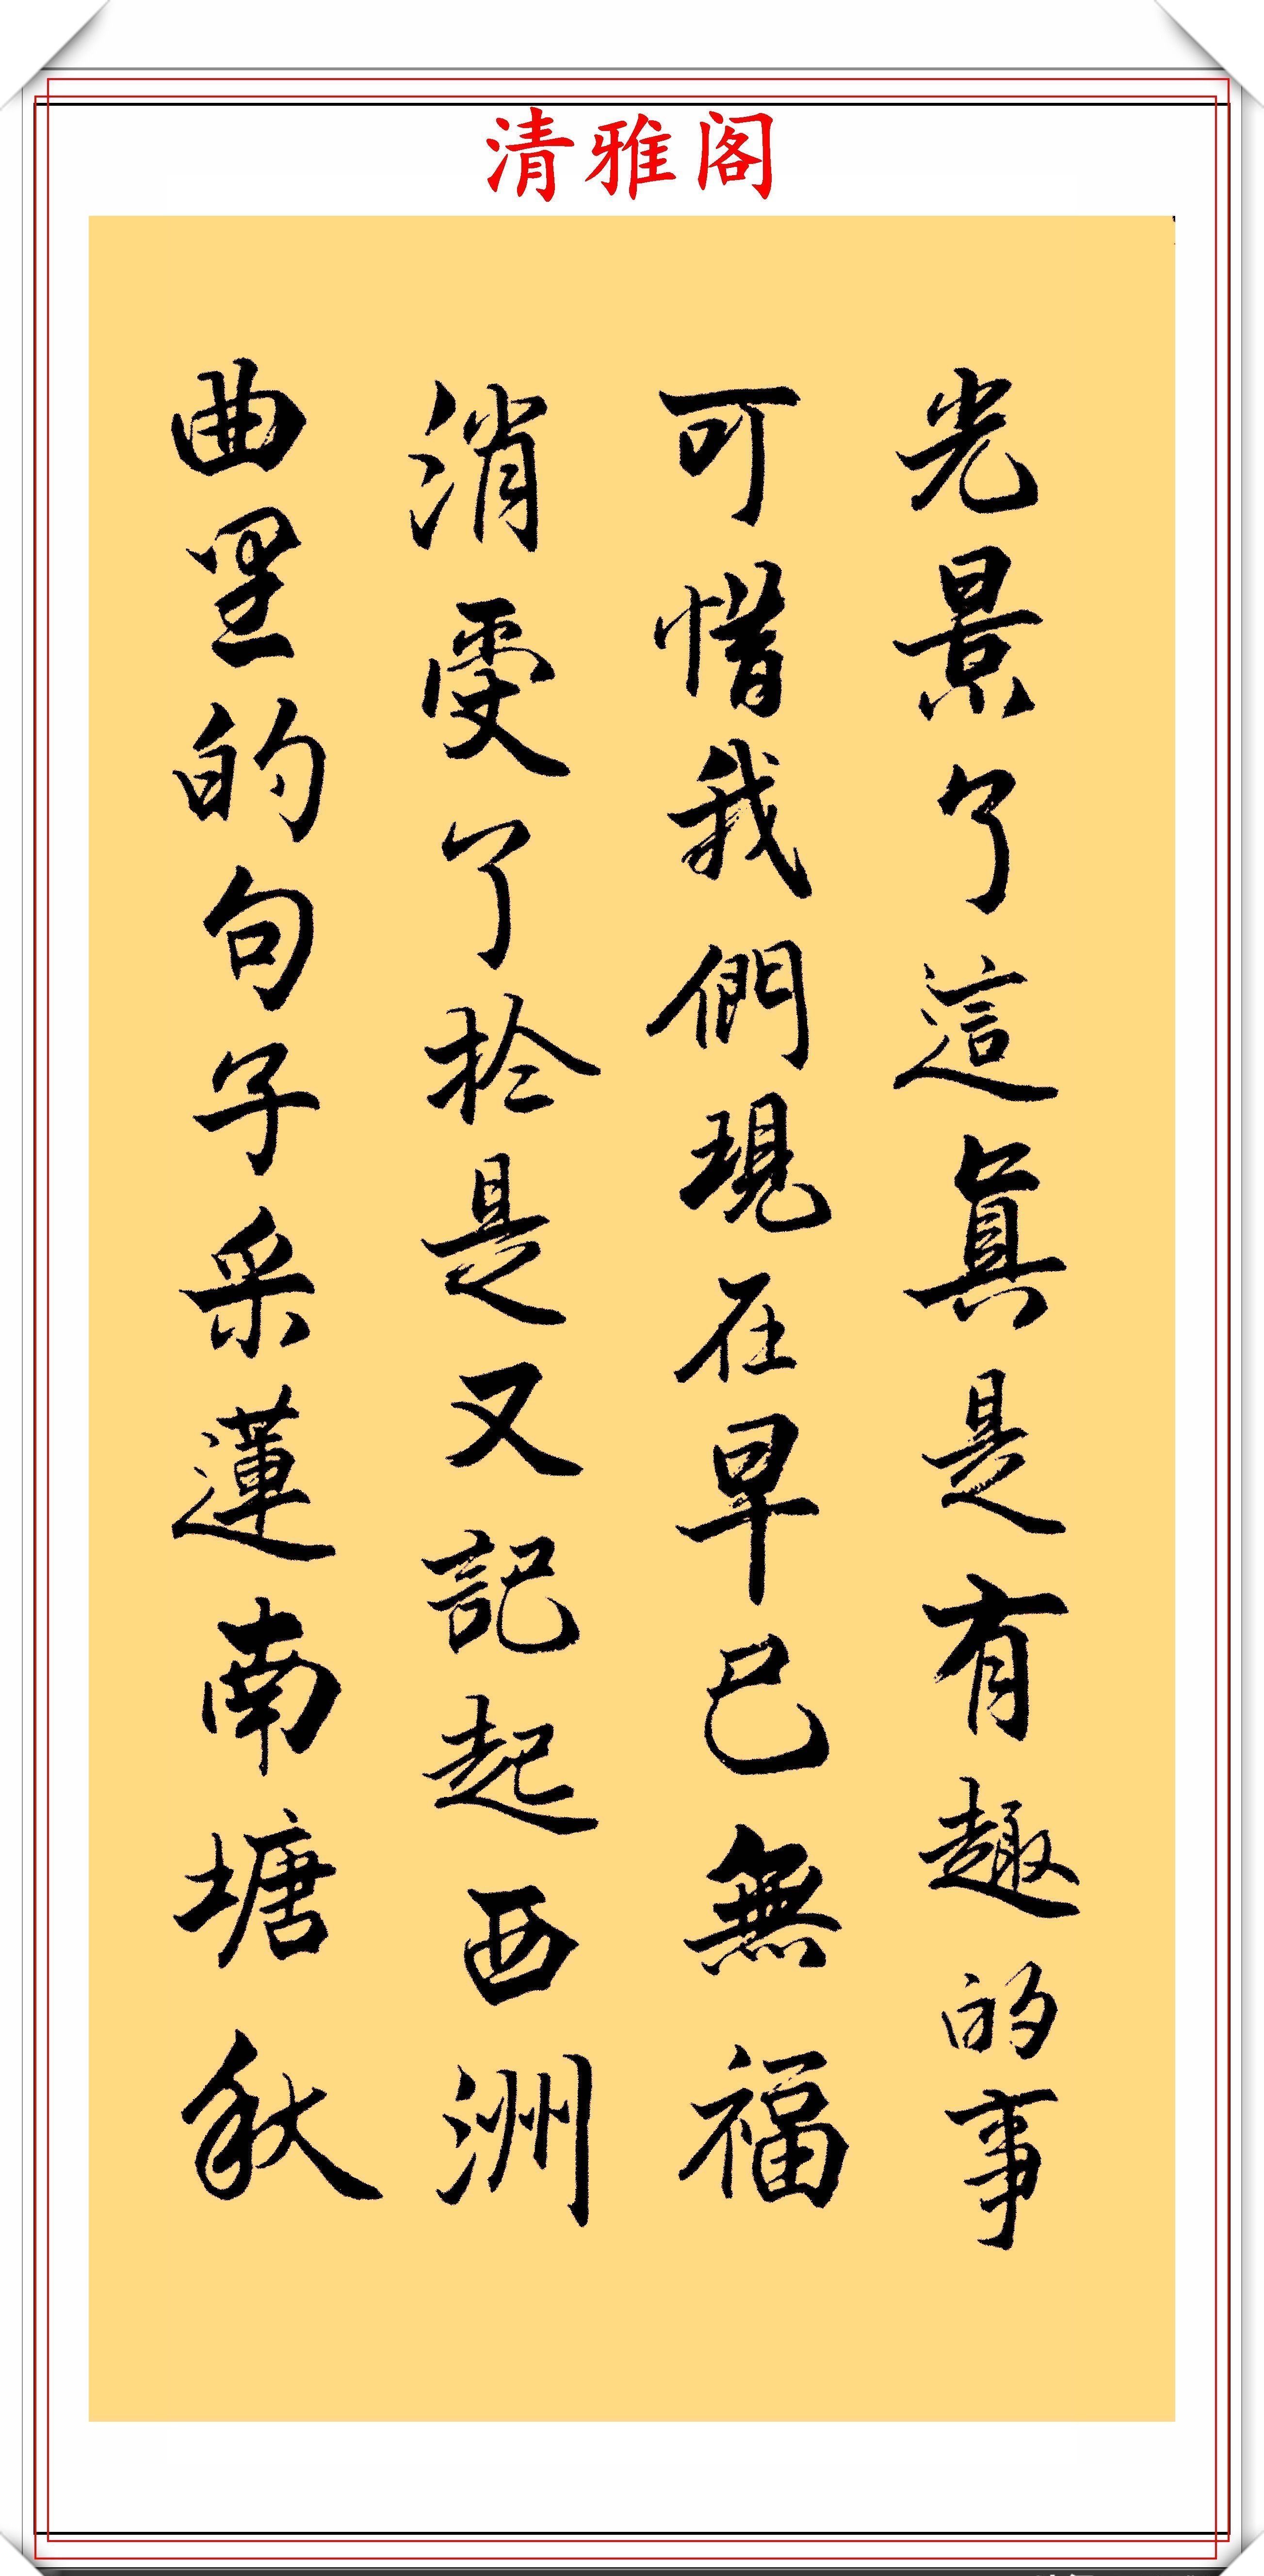 清雅阁
光景了這真是有趣的事
可惜我們現在早已無福
消受了於是又記起西洲
曲里的句子采蓮南塘秋